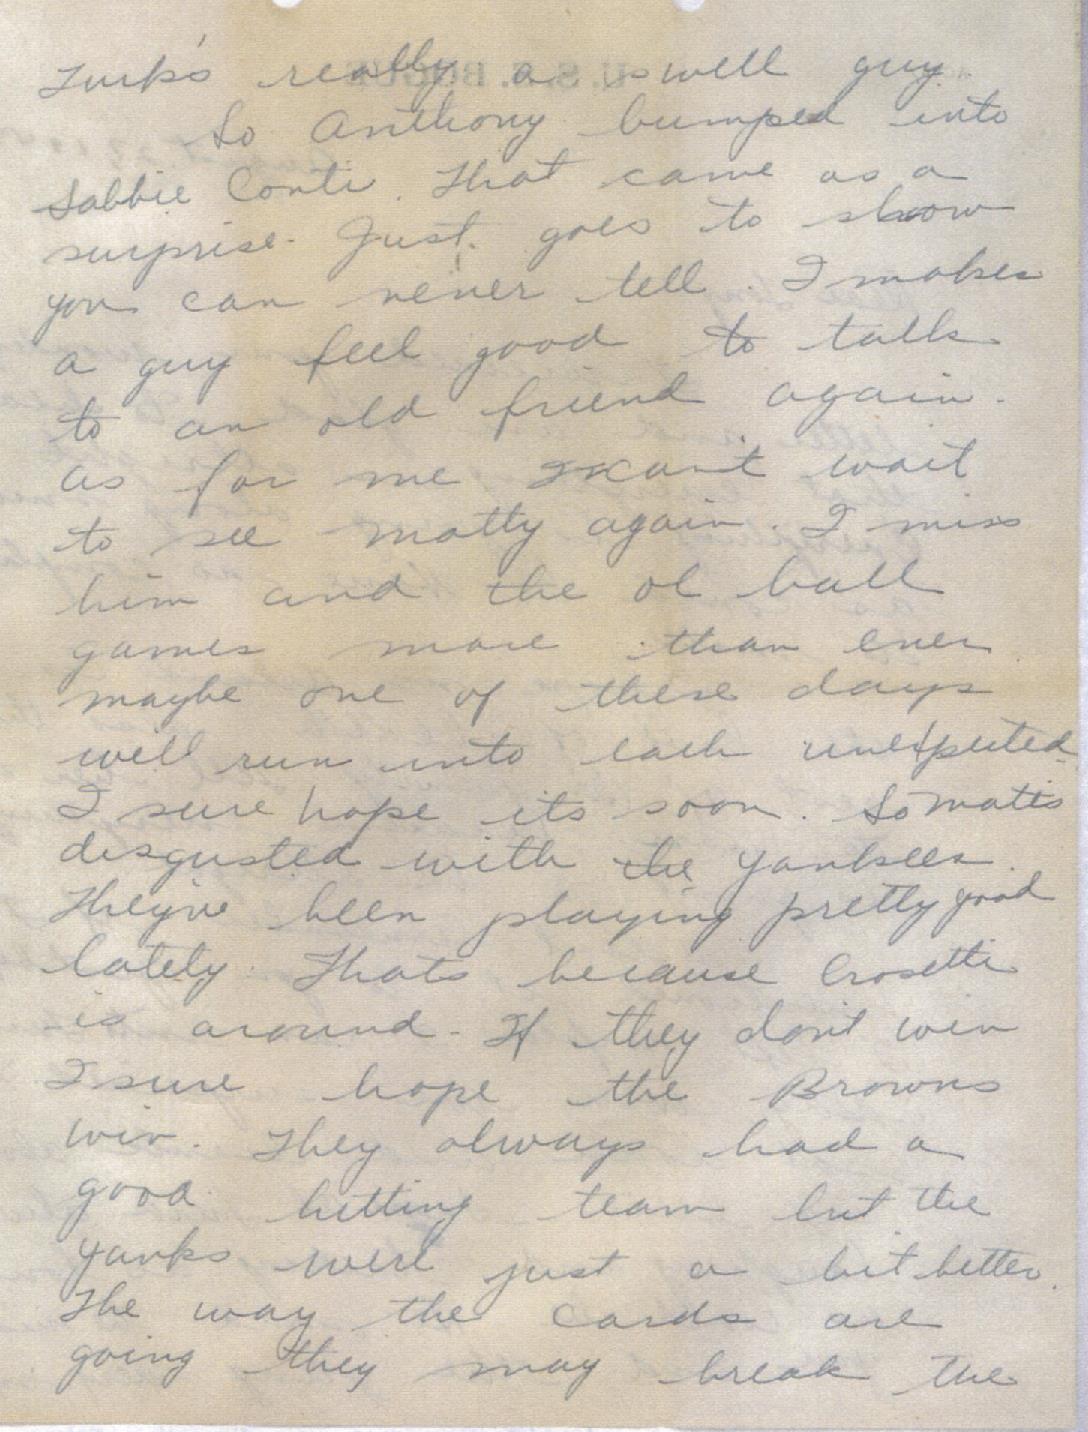 Turk's really a swell guy.
So Anthony bumped into
Sabbie Conti. That came as a
surprise. Just goes to show
you can never tell. I makes
a guy feel good to talk
to an old friend again.
as for me I can't wait
to see Matty again. I miss
him and the ol ball
games more than ever
maybe one of these days
well run into each unexpected.
I sure hope its soon. So Matts
disgusted with the Yankees.
They've been playing pretty good
lately. Thats because Crosetti
is around. If they don't win
I sure hope the Browns
win. They always had a
good hitting team but the
Yanks were just a bit better.
The way the Cards are
going they may break the